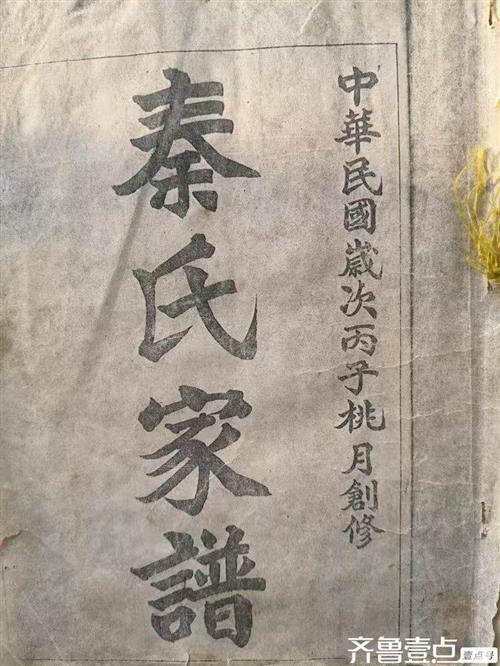 中華民國歲次丙子桃月創修
秦氏家譜
齐鲁壹点
壹点号